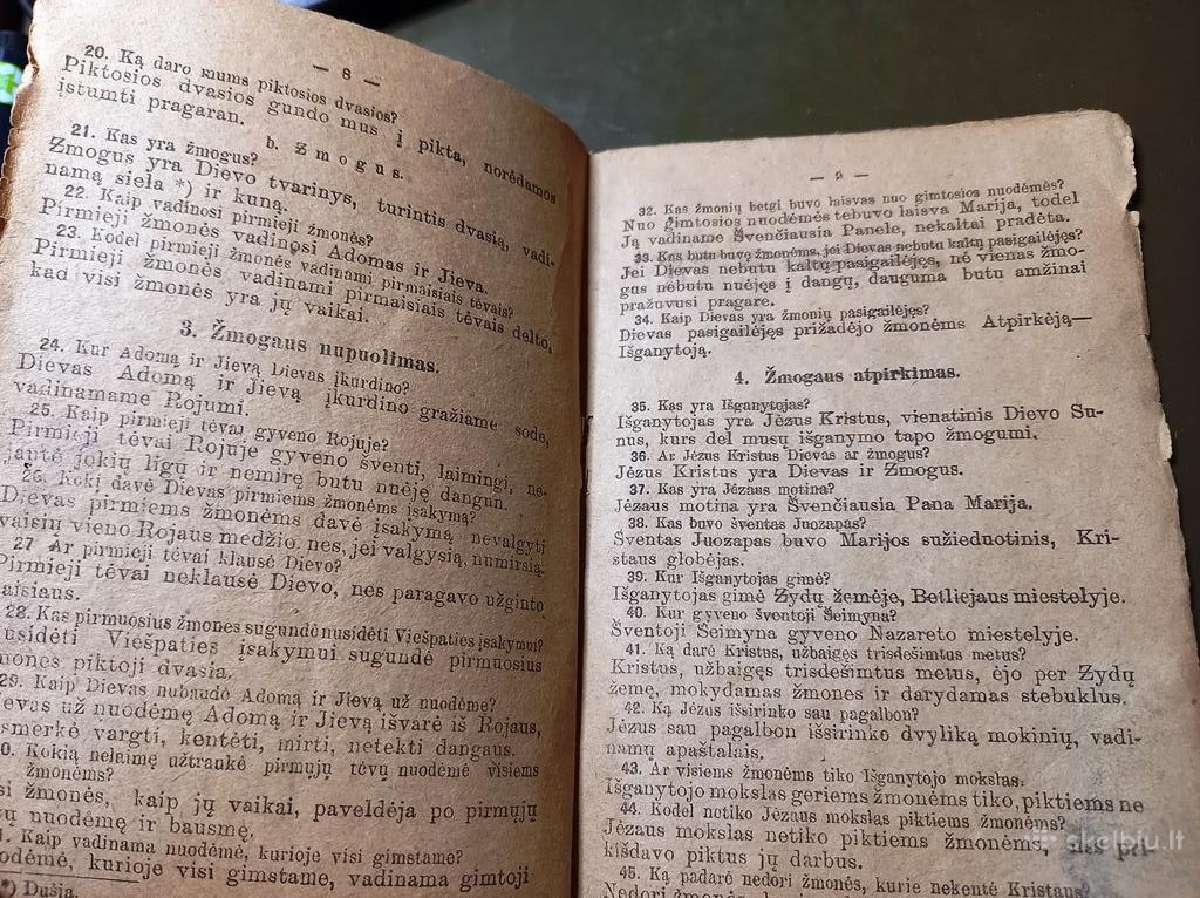 — 8 —
20. Ką daro mums piktosios dvasios?
Piktosios dvasios gundo mus į pikta, norėdamos
įstumti pragaran.
b. Žmogus.
21. Kas yra žmogus?
Žmogus yra Dievo tvarinys, turintis dvasią, vadi-
namą siela *) ir kuną.
22. Kaip vadinosi pirmieji žmonės?
Pirmieji žmonės vadinosi Adomas ir Jieva.
23. Kodel pirmieji žmonės vadinami pirmaisiais tėvais?
Pirmieji žmonės vadinami pirmaisiais tėvais delto,
kad visi žmonės yra jų vaikai.
3. Žmogaus nupuolimas.
24. Kur Adomą ir Jievą Dievas įkurdino?
Dievas Adomą ir Jievą įkurdino gražiame sode,
vadinamame Rojumi.
25. Kaip pirmieji tėvai gyveno Rojuje?
Pirmieji tėvai Rojuje gyveno šventi, laimingi, ne-
jautė jokių ligų ir nemirę butu nuėję dangun.
26. Kokį davė Dievas pirmiems žmonėms įsakymą?
Dievas pirmiems žmonėms davė įsakymą nevalgyti
vaisių vieno Rojaus medžio, nes, jei valgysią, numirsią.
27 Ar pirmieji tėvai klausė Dievo?
Pirmieji tėvai neklausė Dievo, nes paragavo užginto
aisiaus.
28. Kas pirmuosius žmones sugundė nusidėti Viešpaties įsakymui?
usidėti Viešpaties įsakymui sugundė pirmuosius
mones piktoji dvasia.
29. Kaip Dievas nubaudė Adomą ir Jievą už nuodėmę?
ievas už nuodėmę Adomą ir Jievą išvarė iš Rojaus,
smerkė vargti, kentėti, mirti, netekti dangaus.
0. Kokią nelaimę užtraukė pirmųjų tėvų nuodėmė visiems
žmonėms?
si žmonės, kaip jų vaikai, paveldėja po pirmųjų
ų nuodėmę ir bausmę.
1. Kaip vadinama nuodėmė, kurioje visi gimstame?
odėmė, kurioje visi gimstame, vadinama gimtoji
*) Dušia.
— 9 —
32. Kas žmonių betgi buvo laisvas nuo gimtosios nuodėmės?
Nuo gimtosios nuodėmės tebuvo laisva Marija, todel
Ją vadiname Švenčiausia Panele, nekaltai pradėta.
33. Kas butu buvę žmonėms, jei Dievas nebutu kaltų pasigailėjęs?
Jei Dievas nebutu kaltų pasigailėjęs, nė vienas žmo-
gus nėbutu nuėjęs į dangų, dauguma butu amžinai
pražuvusi pragare.
34. Kaip Dievas yra žmonių pasigailėjęs?
Dievas pasigailėjęs prižadėjo žmonėms Atpirkėją—
Išganytoją.
4. Žmogaus atpirkimas.
35. Kas yra Išganytojas?
Išganytojas yra Jėzus Kristus, vienatinis Dievo Su-
nus, kurs del musų išganymo tapo žmogumi.
36. Ar Jėzus Kristus Dievas ar žmogus?
Jėzus Kristus yra Dievas ir Žmogus.
37. Kas yra Jėzaus motina?
Jėzaus motina yra Švenčiausia Pana Marija.
38. Kas buvo šventas Juozapas?
Šventas Juozapas buvo Marijos sužieduotinis, Kri-
staus globėjas.
39. Kur Išganytojas gimė?
Išganytojas gimė Zydų žemėje, Betliejaus miestelyje.
40. Kur gyveno šventoji Šeimyna?
Šventoji Seimyna gyveno Nazareto miestelyje.
41. Ką darė Kristus, užbaigęs trisdešimtus metus?
Kristus, užbaigęs trisdešimtus metus, ėjo per Zydų
žemę, mokydamas žmones ir darydamas stebuklus.
42. Ką Jėzus išsirinko sau pagalbon?
Jėzus sau pagalbon išsirinko dvyliką mokinių, vadi-
namų apaštalais.
43. Ar visiems žmonėms tiko Išganytojo mokslas.
Išganytojo mokslas geriems žmonėms tiko, piktiems ne
44. Kodel netiko Jėzaus mokslas piktiems žmonėms?
Jėzaus mokslas netiko piktiems žmonėms,
kišdavo piktus jų darbus.
45. Ką padarė nedori žmonės, kurie nekentė Kristaus?
Nedori
skelbiu.lt